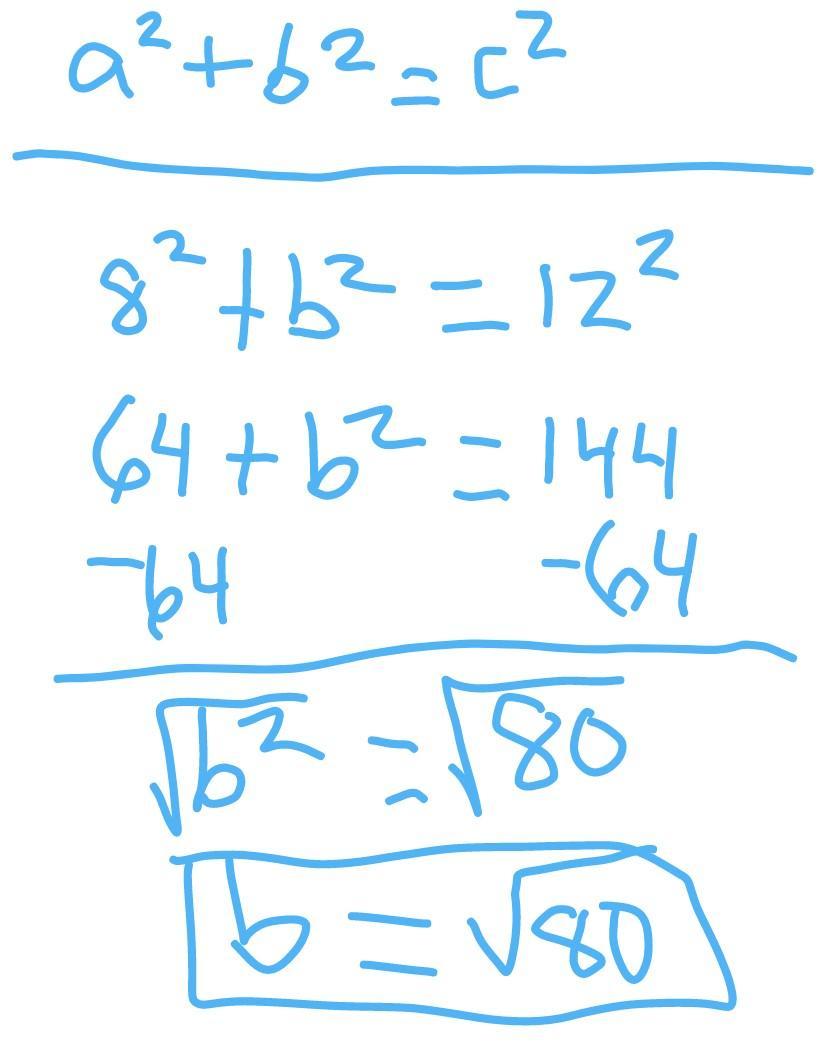 a² + b² = c²
8² + b² = 12²
64 + b² = 144
-64 -64
√b² = √80
b = √80